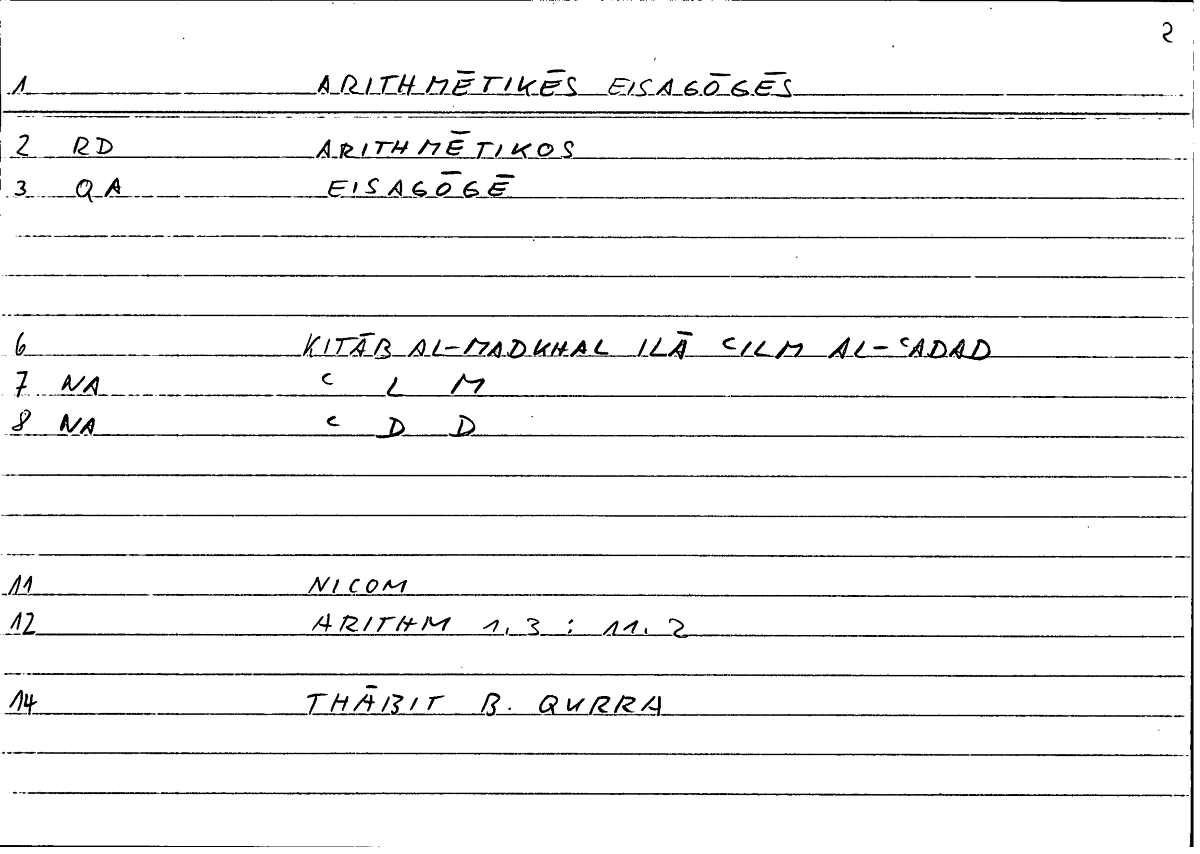 2
1 ARITHMĒTIKĒS EISAGŌGĒS
2 RD ARITHMĒTIKOS
3 QA EISAGŌGĒ
6 KITĀB AL-MADKHAL ILĀ ʿILM AL-ʿADAD
7 NA ʿ L M
8 NA ʿ D D
11 NICOM
12 ARITHM 1.3 : 11.2
14 THĀBIT B. QURRA